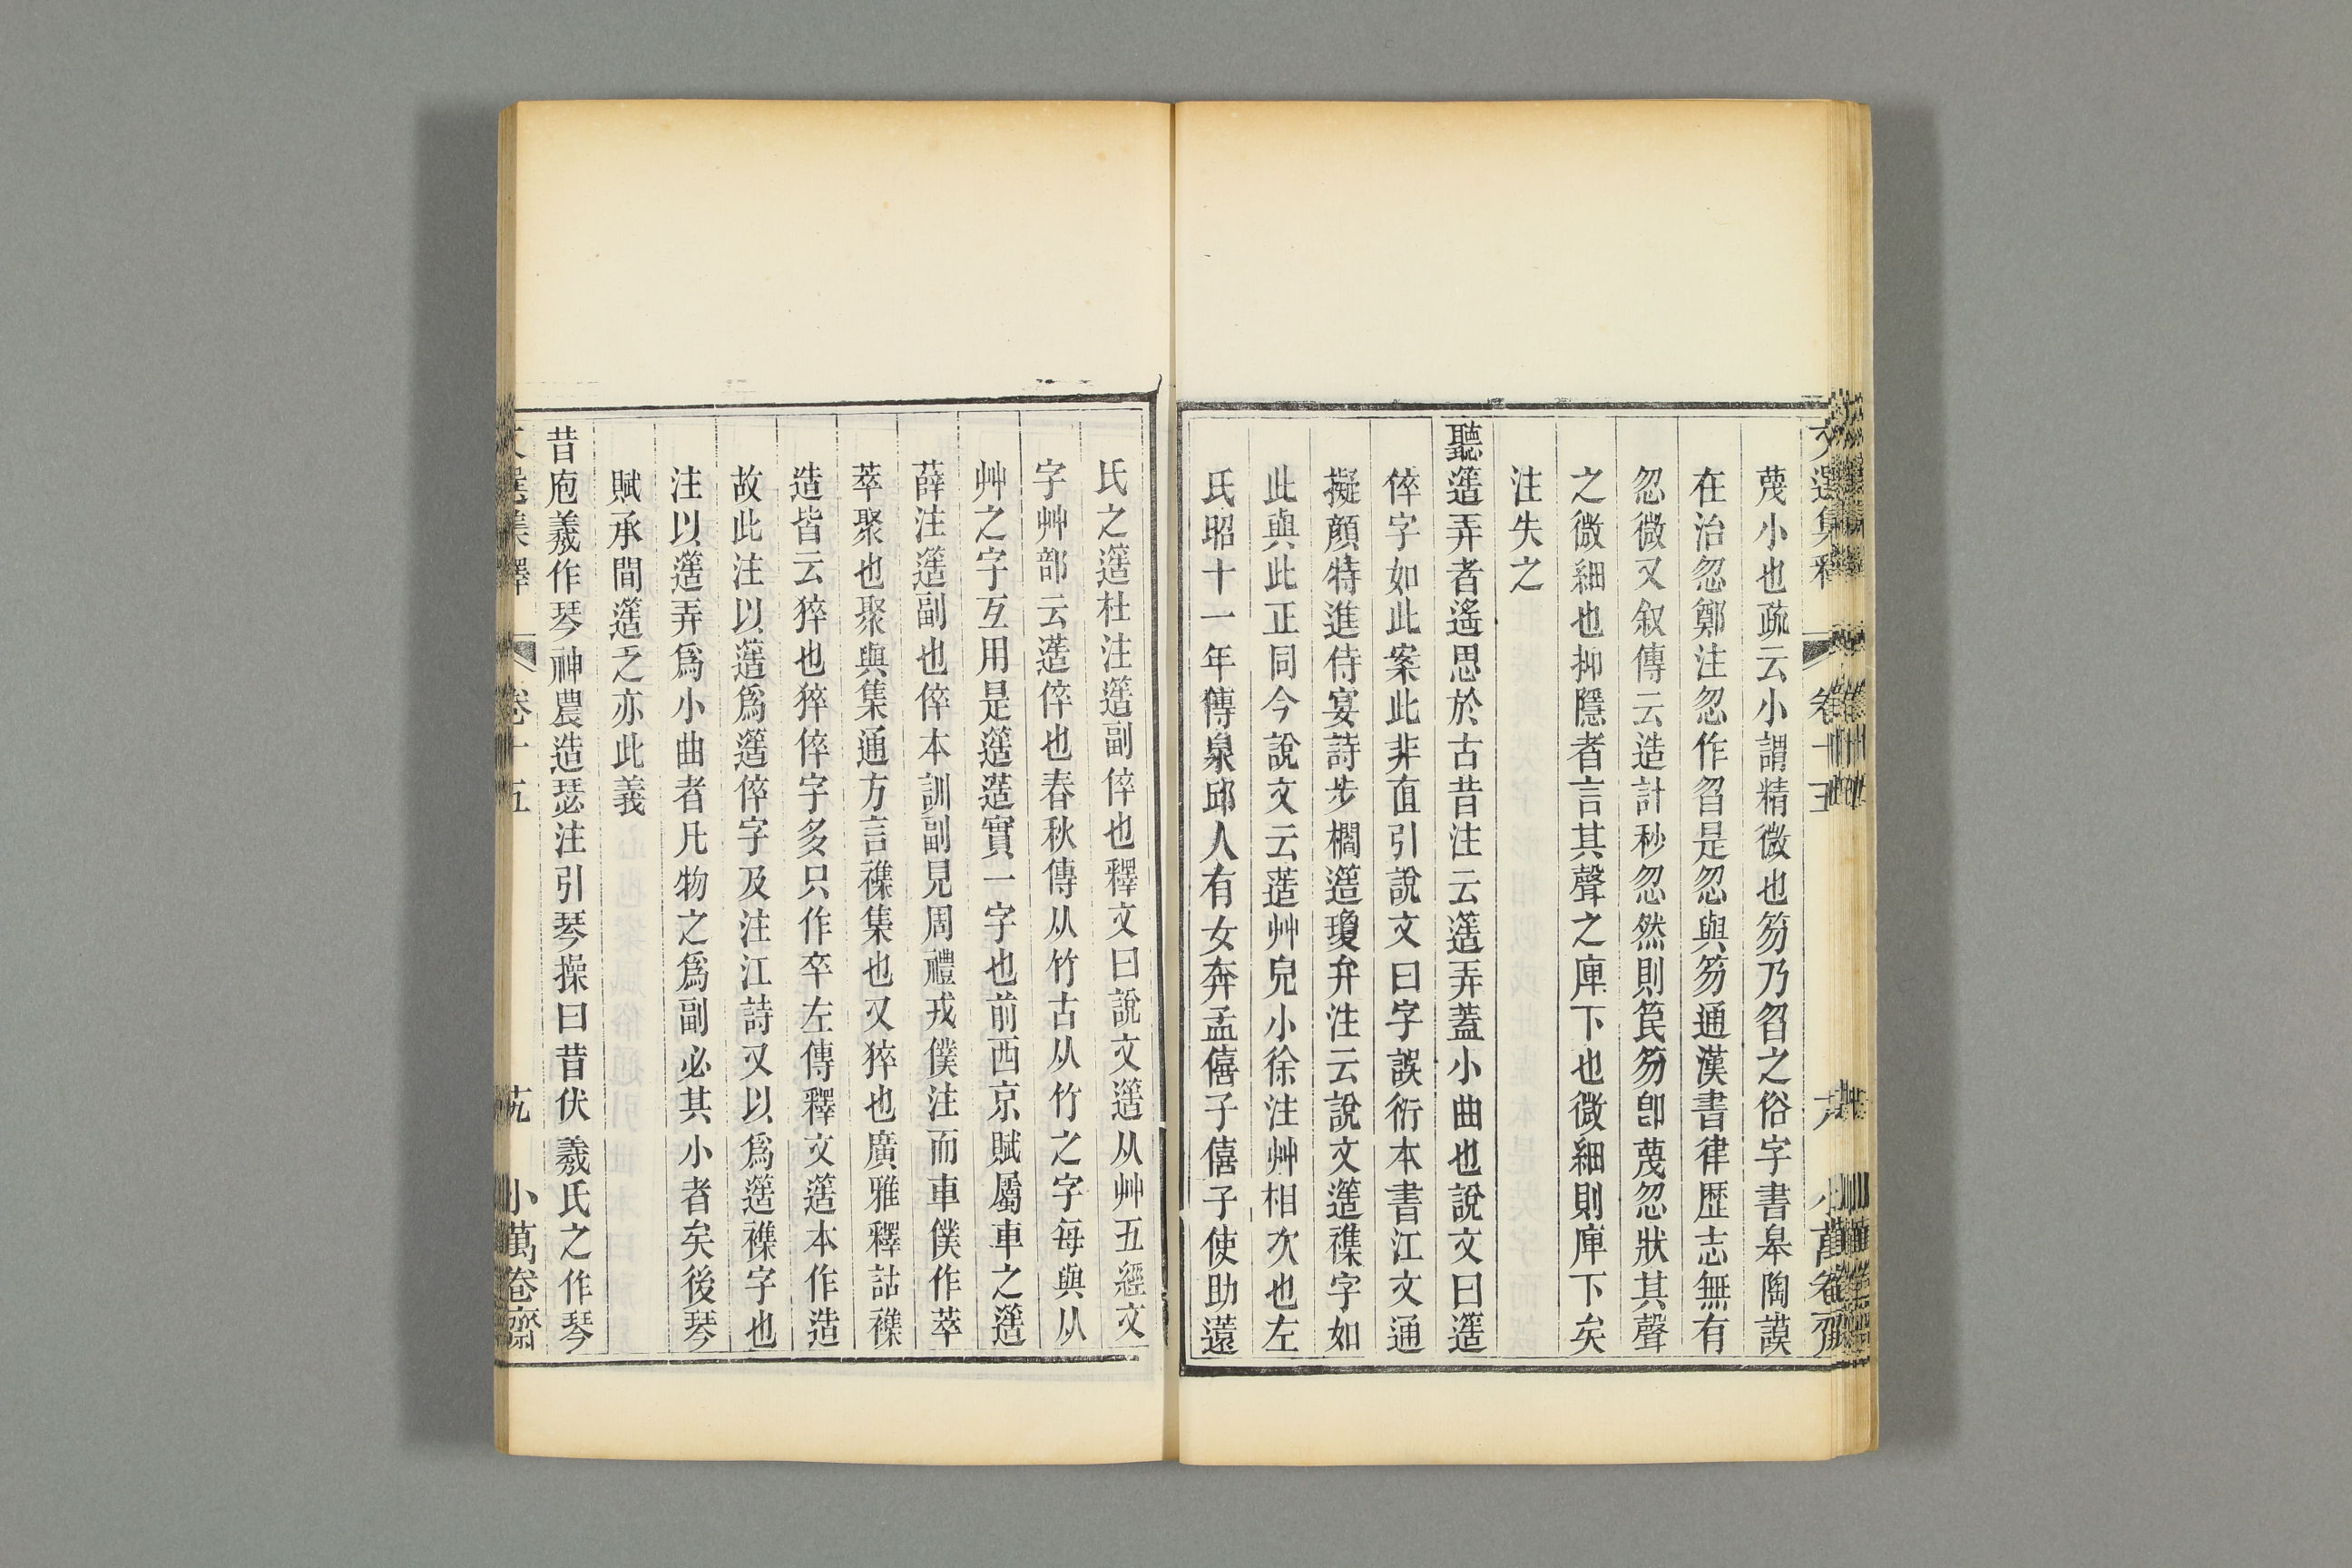 蔑小也疏云小謂精微也笏乃曶之俗字書皋陶謨
在治忽鄭注忽作曶是忽與笏通漢書律歷志無有
忽微又叙傳云造計秒忽然則篾笏卽蔑忽狀其聲
之微細也抑隱者言其聲之庳下也微細則庳下矣
注失之
聽簉弄者遙思於古昔注云簉弄蓋小曲也說文曰簉
倅字如此案此非直引說文曰字誤衍本書江文通
擬顏特進侍宴詩步櫩簉瓊弁注云說文簉襍字如
此與此正同今說文云䔏艸皃小徐注艸相次也左
氏昭十一年傳泉邱人有女奔孟僖子僖子使助薳
氏之簉杜注簉副倅也釋文曰說文簉从艸五經文
字艸部云䔏倅也春秋傳从竹古从竹之字每與从
艸之字互用是簉䔏實一字也前西京賦屬車之簉
薛注簉副也倅本訓副見周禮戎僕注而車僕作萃
萃聚也聚與集通方言襍集也又猝也廣雅釋詁襍
造皆云猝也猝倅字多只作卒左傳釋文簉本作造
故此注以簉爲簉倅字及注江詩又以爲簉襍字也
注以簉弄爲小曲者凡物之爲副必其小者矣後琴
賦承間簉乏亦此義
昔庖羲作琴神農造瑟注引琴操曰昔伏羲氏之作琴
文選集釋 卷十五 小萬卷齋